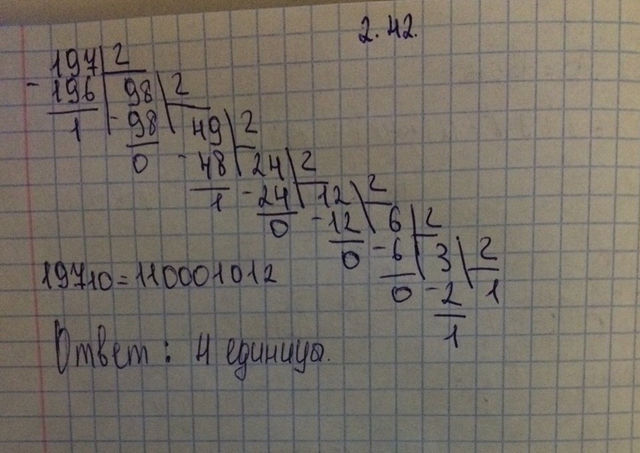 2.42.
197 2
- 196 98 2
1 - 98 49 2
0 - 48 24 2
1 - 24 12 2
0 - 12 6 2
0 - 6 3 2
0 - 2 1
1
19710=110001012
Ответ: 4 единицы.